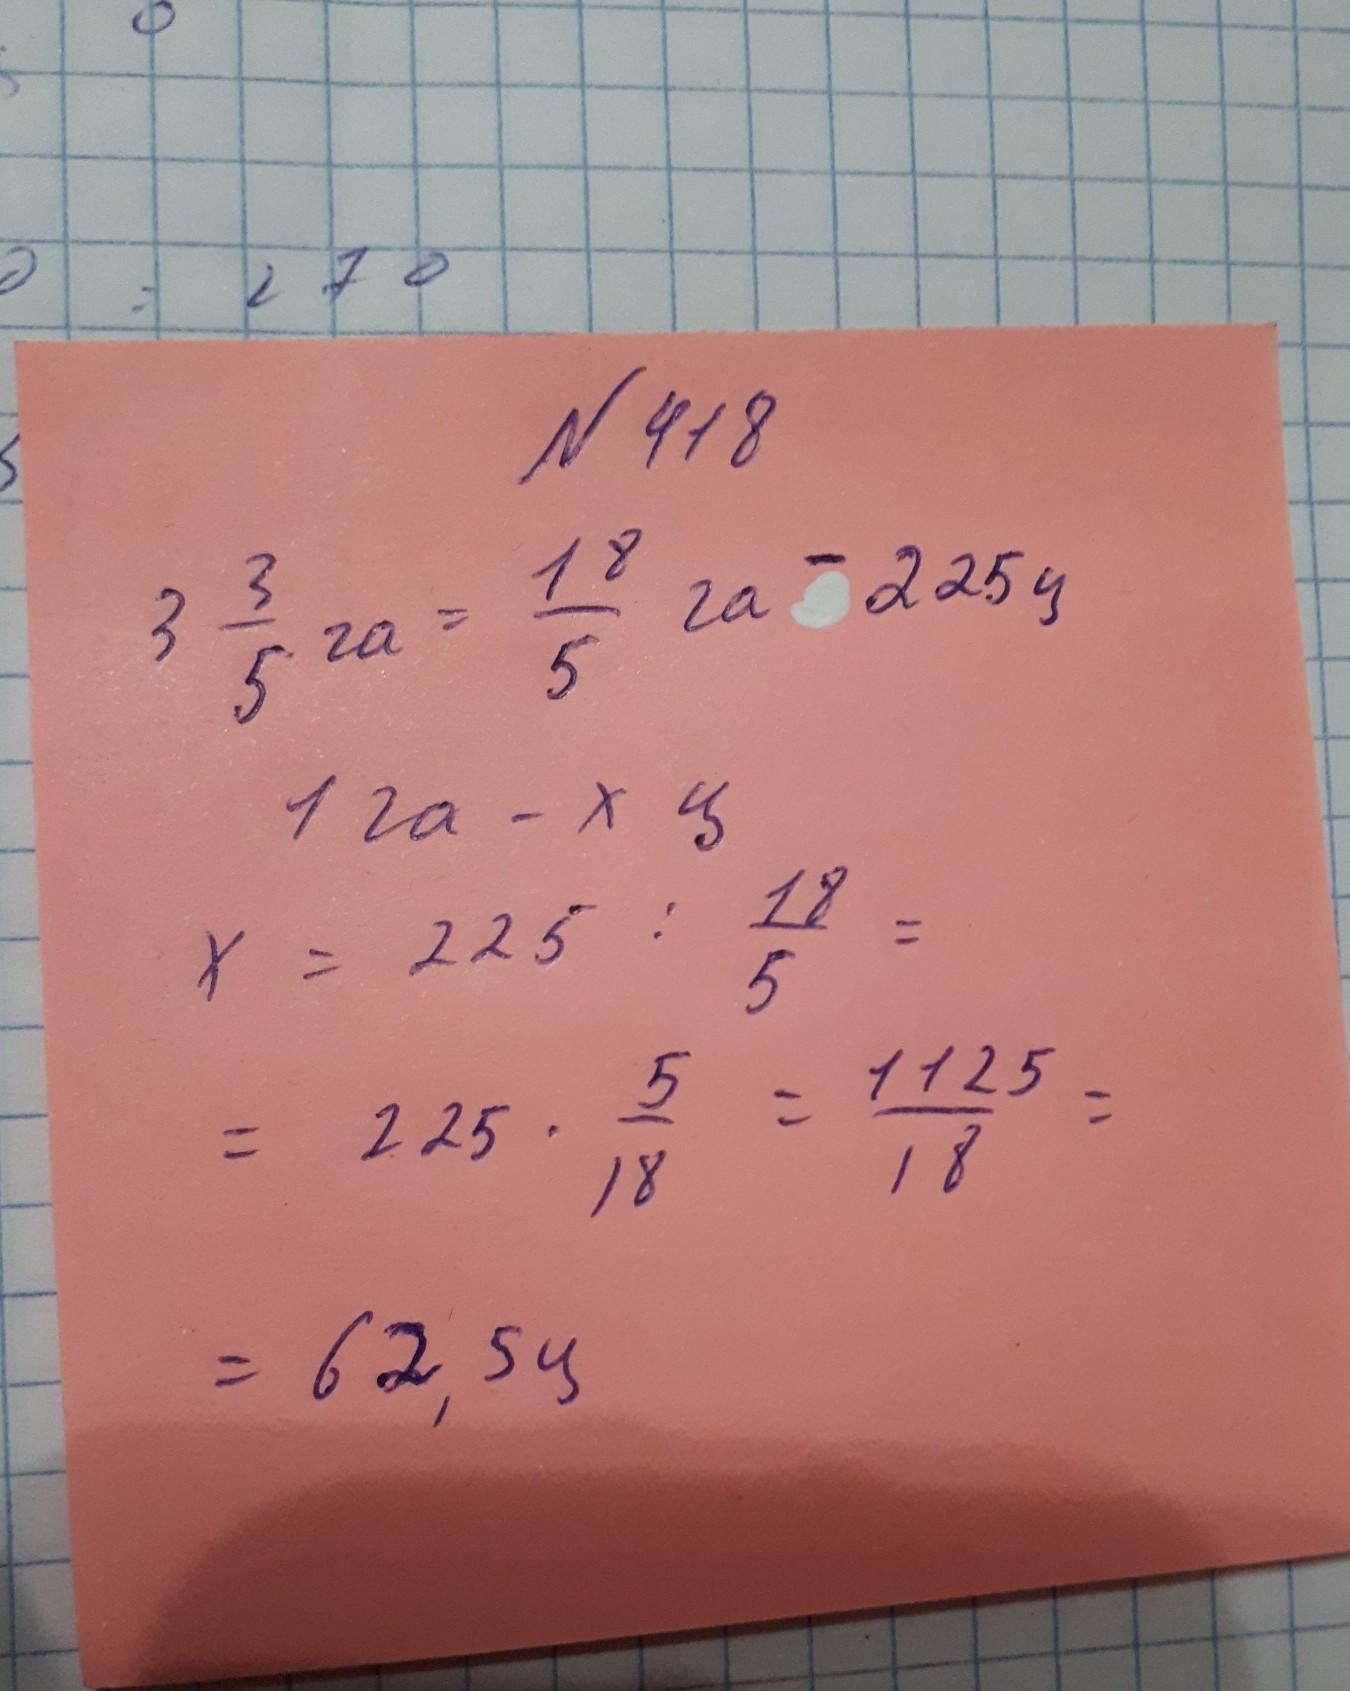 0
= 270
N 418
3 3/5 га = 18/5 га - 225ц
1 га - х ц
х = 225 : 18/5 =
= 225 · 5/18 = 1125/18 =
= 62,5ц